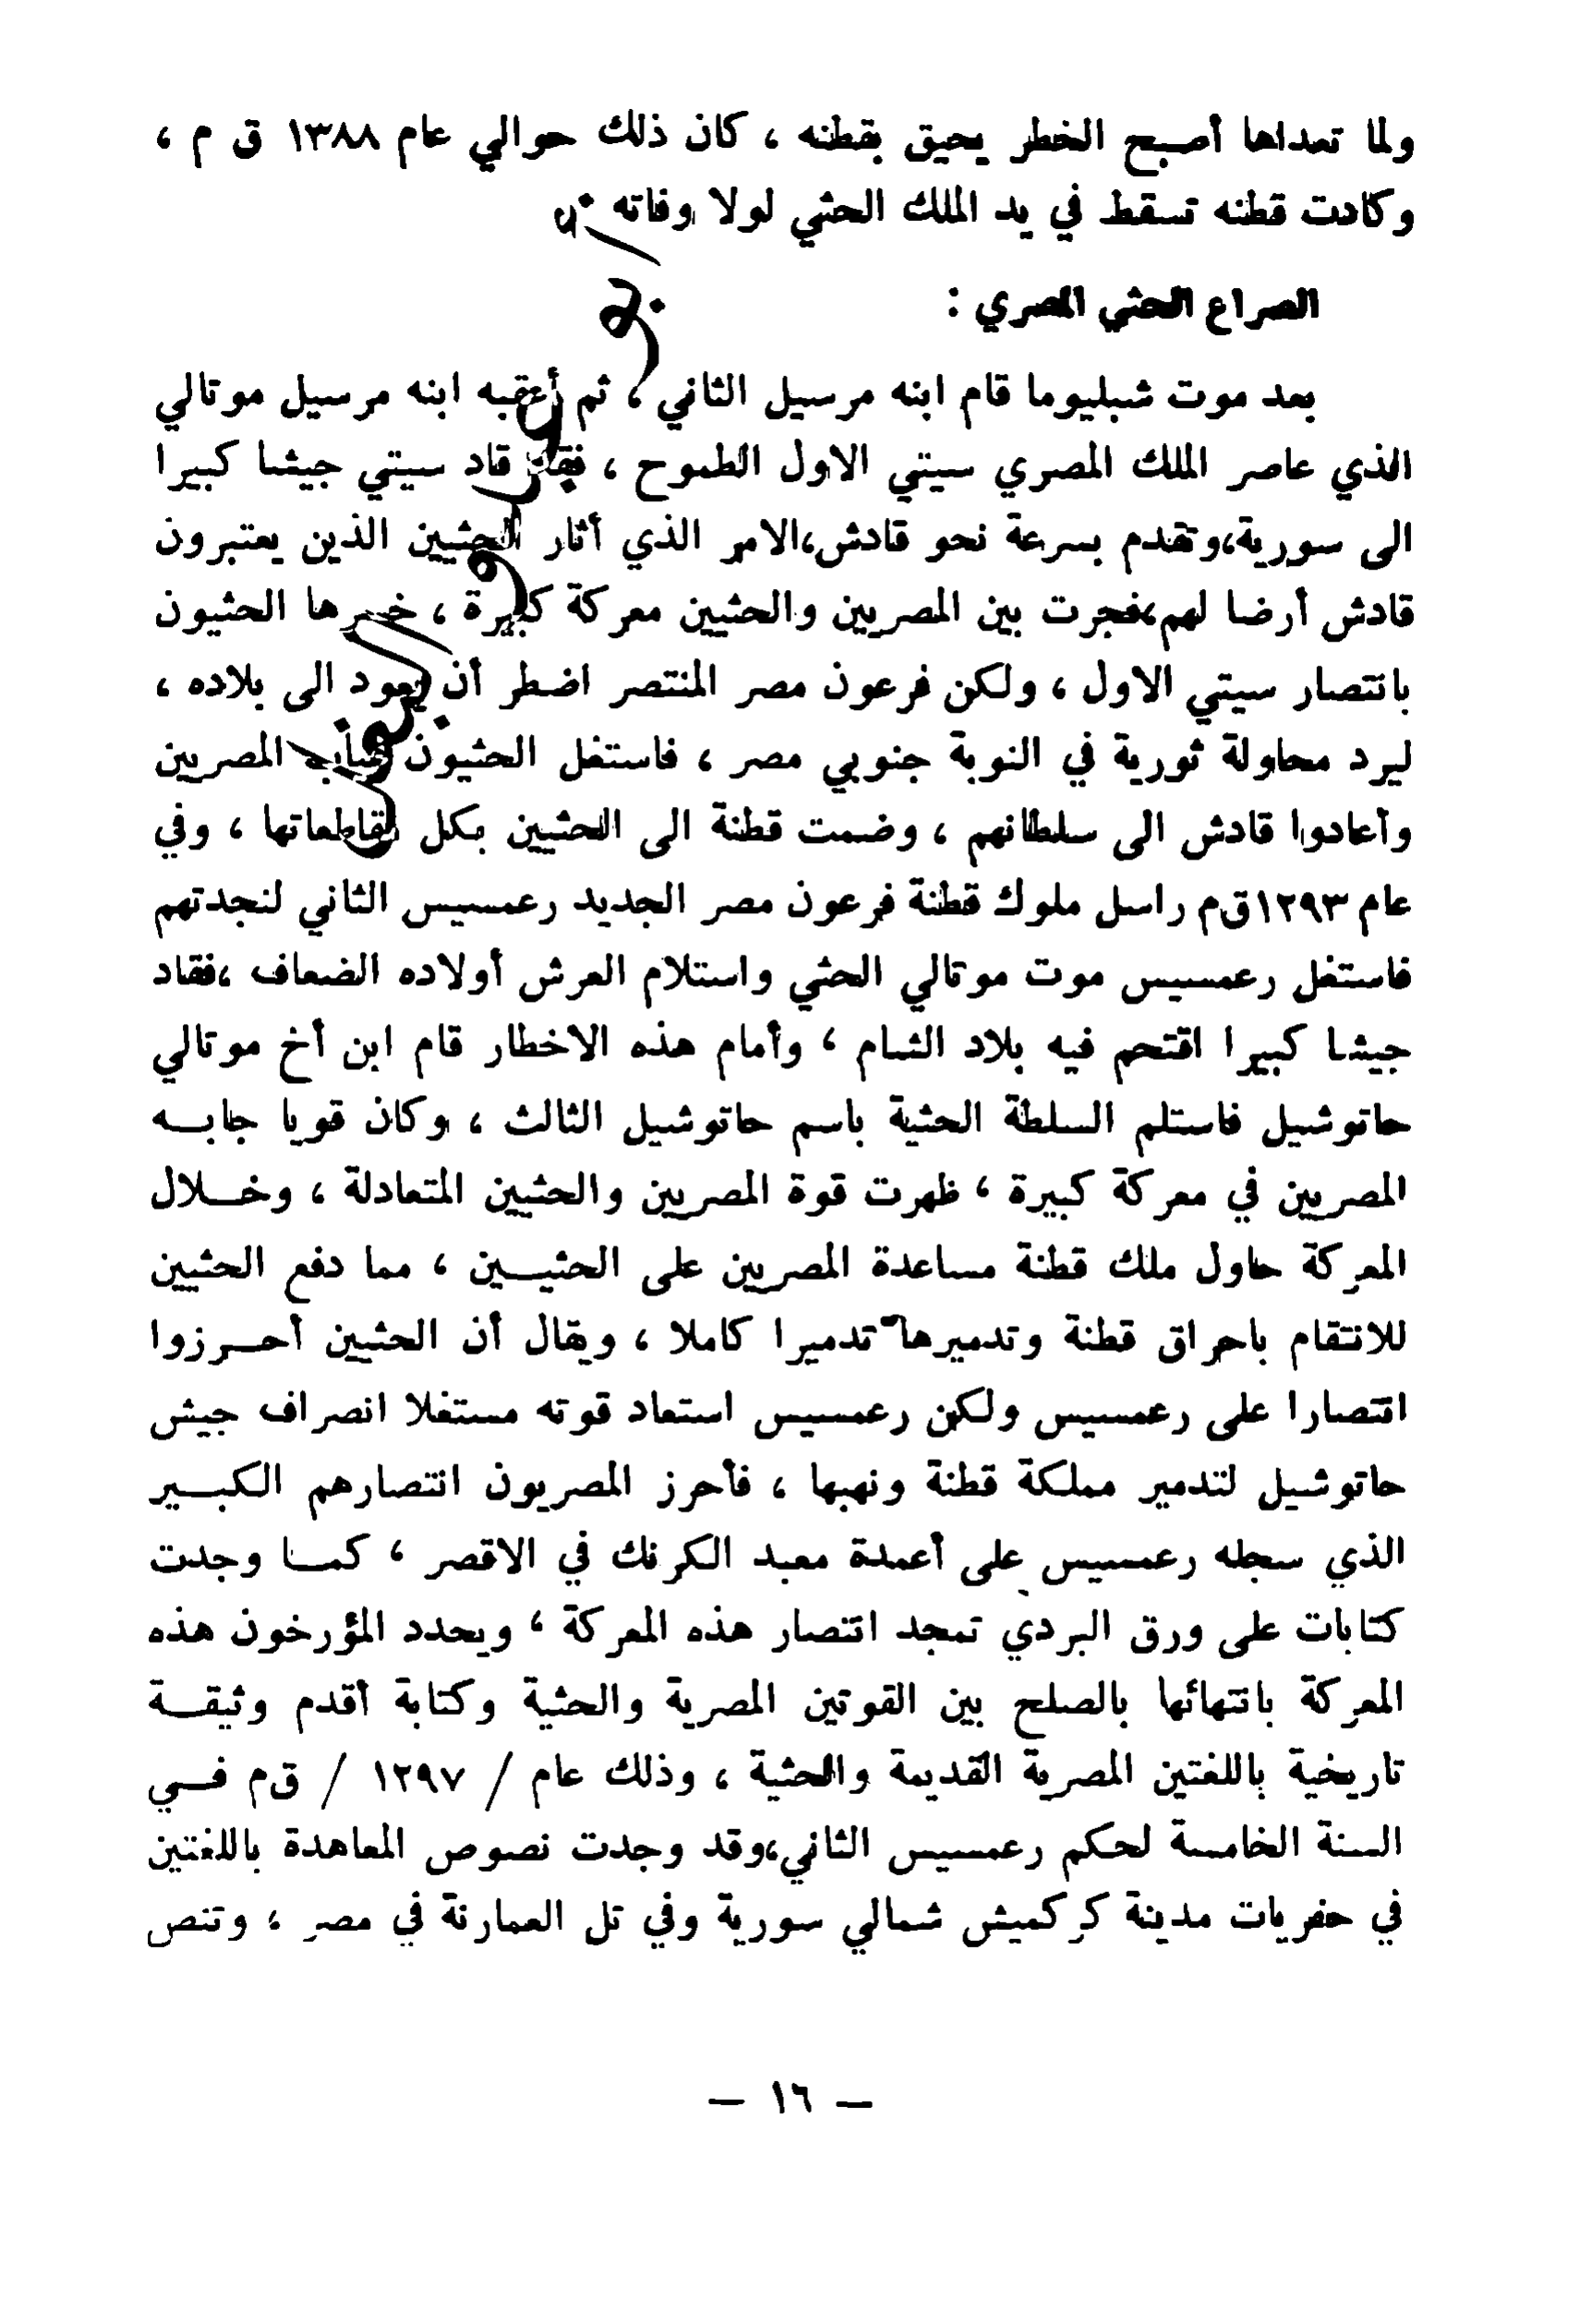 ولما تعداها أصبح الخطر يحيق بقطنه ، كان ذلك حوالي عام ١٣٨٨ ق م ،
وكادت قطنه تسقط في يد الملك الحثي لولا وفاته .
الصراع الحثي المصري :
بعد موت شبليوما قام ابنه مرسيل الثاني ، ثم أعقبه ابنه مرسيل موتالي
الذي عاصر الملك المصري سيتي الاول الطموح ، فقد قاد سيتي جيشا كبيرا
الى سورية،وتقدم بسرعة نحو قادش،الامر الذي أثار الحثيين الذين يعتبرون
قادش أرضا لهم،فجرت بين المصريين والحثيين معركة كبيرة ، خسرها الحثيون
بانتصار سيتي الاول ، ولكن فرعون مصر المنتصر اضطر أن يعود الى بلاده ،
ليرد محاولة ثورية في النوبة جنوبي مصر ، فاستغل الحثيون غياب المصريين
وأعادوا قادش الى سلطانهم ، وضمت قطنة الى الحثيين بكل مقاطعاتها ، وفي
عام ١٢٩٣ق م راسل ملوك قطنة فرعون مصر الجديد رعمسيس الثاني لنجدتهم
فاستغل رعمسيس موت موتالي الحثي واستلام العرش أولاده الضعاف ،فقاد
جيشا كبيرا اقتحم فيه بلاد الشام ، وأمام هذه الاخطار قام ابن أخ موتالي
حاتوشيل فاستلم السلطة الحثية باسم حاتوشيل الثالث ، وكان قويا جابه
المصريين في معركة كبيرة ، ظهرت قوة المصريين والحثيين المتعادلة ، وخلال
المعركة حاول ملك قطنة مساعدة المصريين على الحثيين ، مما دفع الحثيين
للانتقام باحراق قطنة وتدميرها تدميرا كاملا ، ويقال أن الحثيين أحرزوا
انتصارا على رعمسيس ولكن رعمسيس استعاد قوته مستغلا انصراف جيش
حاتوشيل لتدمير مملكة قطنة ونهبها ، فأحرز المصريون انتصارهم الكبير
الذي سجله رعمسيس على أعمدة معبد الكرنك في الاقصر ، كما وجدت
كتابات على ورق البردي تمجد انتصار هذه المعركة ، ويحدد المؤرخون هذه
المعركة بانتهائها بالصلح بين القوتين المصرية والحثية وكتابة أقدم وثيقة
تاريخية باللغتين المصرية القديمة والحثية ، وذلك عام / ١٢٩٧ / ق م في
السنة الخامسة لحكم رعمسيس الثاني،وقد وجدت نصوص المعاهدة باللغتين
في حفريات مدينة كركميش شمالي سورية وفي تل العمارنة في مصر ، وتنص
— ١٦ —